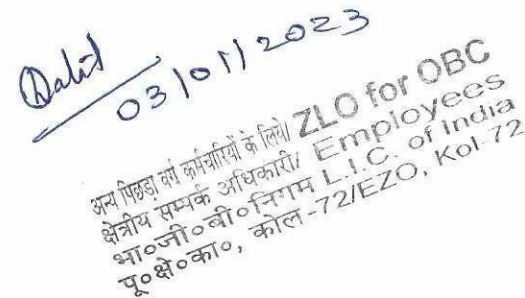 03/01/2023
अन्य पिछडा वर्ग कर्मचारियों के लिये/ ZLO for OBC
क्षेत्रीय सम्पर्क अधिकारी/ Employees
भा०जी०बी०निगम L.I.C. of India
पू०क्षे०का०, कोल-72/EZO, Kol-72